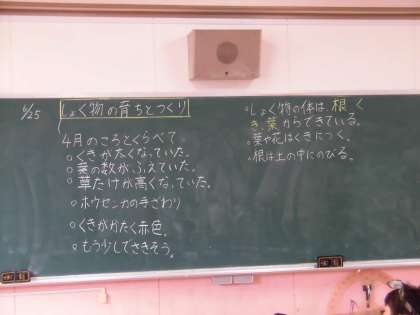 6/25
しょく物の育ちとつくり
4月のころとくらべて。
○くきが太くなっていた。
○葉の数がふえていた。
○草たけが高くなっていた。
○ホウセンカの手ざわり
○くきがかたく赤色。
○もう少しでさきそう。
・しょく物の体は、根く
き葉からできている。
・葉や花はくきにつく。
・根は土の中にのびる。